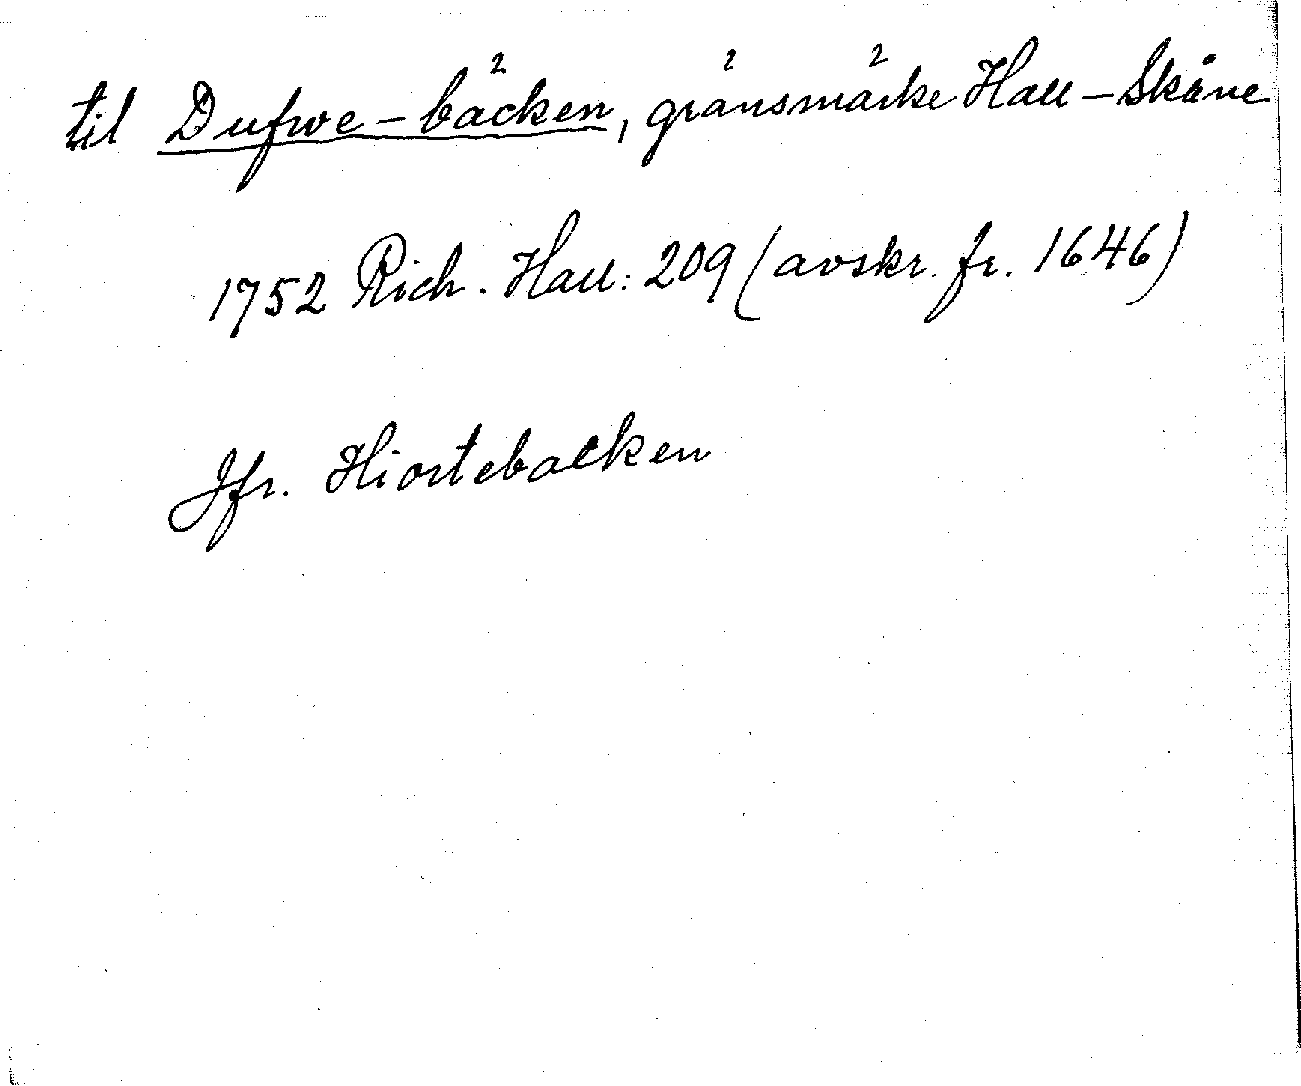 til Dufwe-bäcken, gränsmärke Hall-Skåne
1752 Rich. Hall: 209 (avskr. fr. 1646)
Jfr. Hiortebacken